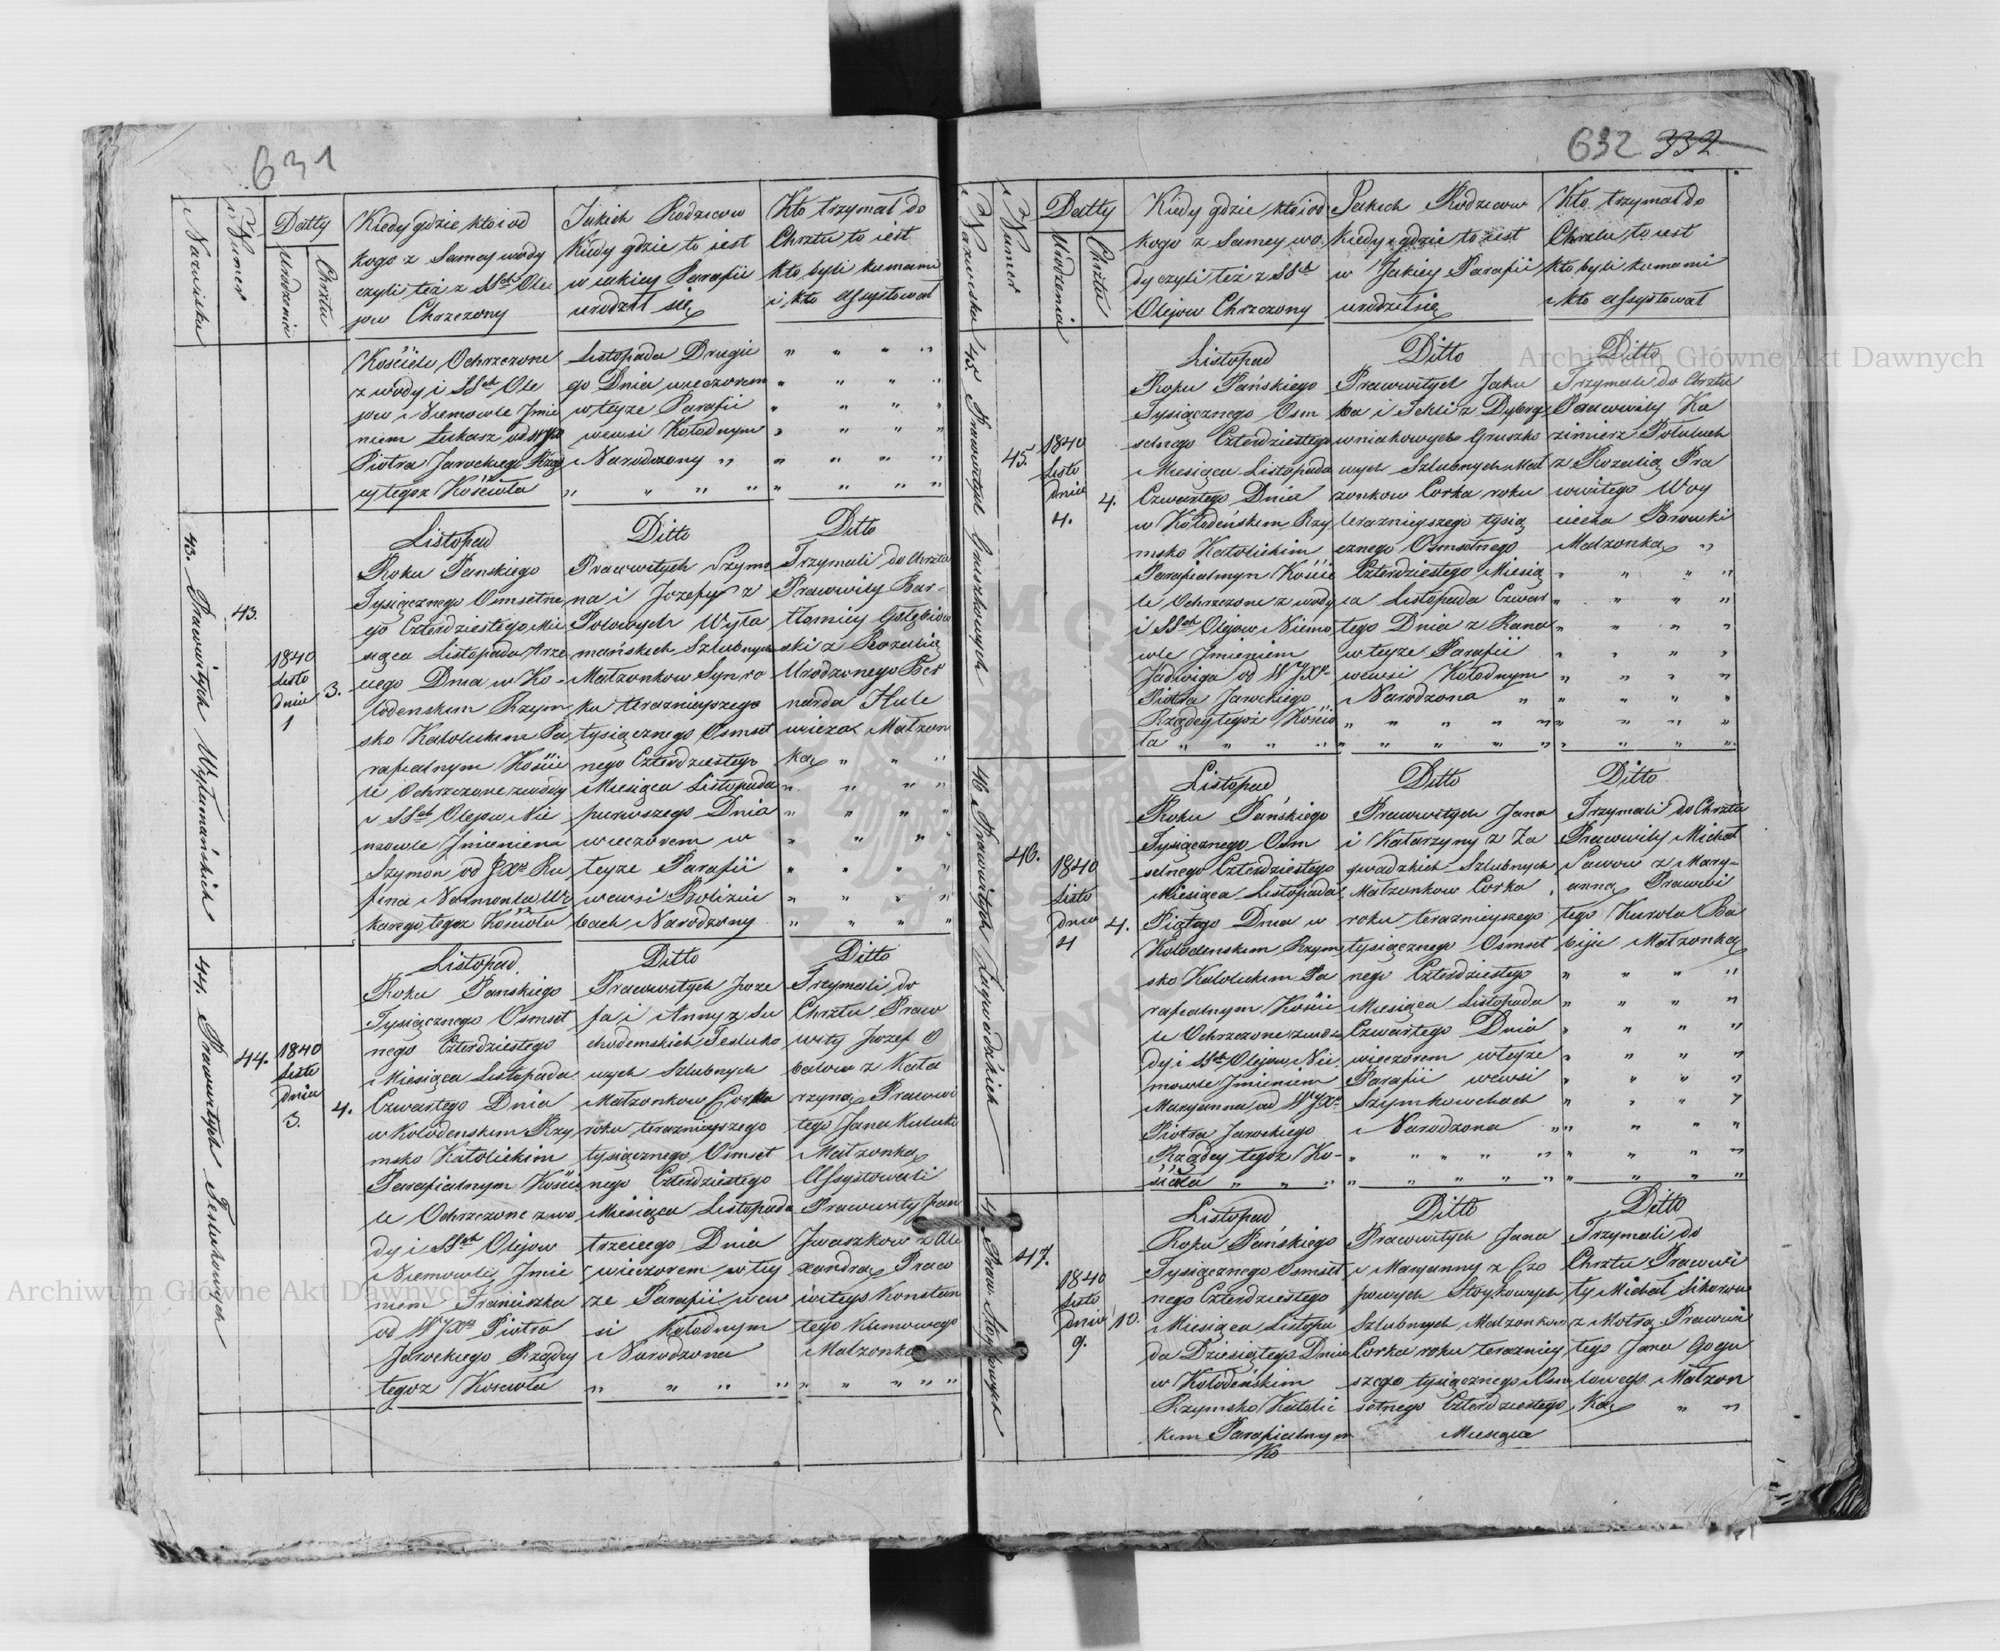 631
Nazwiska
Numer
Datty
Urodzenia
Chrztu
Kiedy gdzie kto i od
kogo z Samej wody
czyli też z SSch Ole
jow Chrzczony
Jakich Rodzicow
Kiedy gdzie to iest
w iakiey Parafii
urodził się
Kto trzymał do
Chrztu to iest
kto byli kumami
i kto assystował
Kościele Ochrzczone
z wody i SSch Ole
jow Niemowle Jmie
niem Łukasz od
Piotra Jarockiego Rząd
cy tegoż Kościoła
Listopada Drugie
go Dnia wieczorem
w teyże Parafii
wewsi Kołodnym
Narodzony
43. Prawowitych Wyłamańskich
43.
1840
Listo
dnia
1
3.
Listopad
Roku Panskiego
Tysiącznego Osmsetne
go Czterdziestego Mie
siąca Listopada trze
ciego Dnia w Ko-
łodenskim Rzym
sko Katolickim Pa
rafialnym Koście
le Ochrzczone z wody
i SSch Olejow Nie
mowle Jmieniem
Szymon od JXa Ru
fina Normonta Wi
karego tegoż Kościoła
Ditto
Prawowitych Szymo
na i Jozefy z
Połowych Wyła
mańskich Szlubnych
Małzonkow Syn ro
ku teraznieyszego
tysiącznego Osmset
nego Czterdziestego
Miesiąca Listopada
pierwszego Dnia
wieczorem w
teyze Parafii
wewsi Bolizu
bach Narodzony
Ditto
Trzymali do Chrztu
Prawowity Bar-
tłomiey Gołębiow
ski z Rozalią
Urodzonego Ber
narda Hule
wicza Małzon
ką
44. Prawowitych Tesluhowych
44.
1840
Listo
dnia
3.
4.
Listopad
Roku Panskiego
Tysiącznego Osmset
nego Czterdziestego
Miesiąca Listopada
Czwartego Dnia
w Kołodenskim Rzy
msko Katolickim
Parafialnym Koście
le Ochrzczone z wo
dy i SSch Olejow
Niemowle Jmie
niem Franciszka
od WJXa Piotra
Jarockiego Rządcy
tegoz Koscioła
Ditto
Prawowitych Joze
fa i Anny z Su
chodemskich Tesluho
wych Szlubnych
Małzonkow Corka
roku teraznieyszego
tysiącznego Osmset
nego Czterdziestego
Miesiąca Listopada
trzeciego Dnia
wieczorem w tey
ze Parafii wew
si Kołodnym
Narodzona
Ditto
Trzymali do
Chrztu Praw
wity Jozef O
bałow z Kata
rzyną Prawowi
tego Jana Kuluk
Małzonką
Assystowali
Prawowity Jan
Jwaszkow z Ale
xandrą Praw
witego Konstan
tego Klimowego
Małzonką
632 332
Nazwiska
Numer
Datty
Urodzenia
Chrztu
Kiedy gdzie kto i od
kogo z Samey wo
dy czyli też z SSch
Olejow Chrzczony
Jakich Rodzicow
Kiedy i gdzie to iest
w Jakiey Parafii
urodził się
Kto trzymał do
Chrztu, to iest
kto byli kumami
i kto assystował
45. Prawowitych Gruszkowych
45.
1840
Listo
dnia
4.
4.
Listopad
Roku Pańskiego
Tysiącznego Osm
setnego Czterdziestego
Miesiąca Listopada
Czwartego Dnia
w Kołodeńskim Rzy
msko Katolickim
Parafialnym Koście
le Ochrzczone z wody
i SSch Olejow Niemo
wle Jmieniem
Jadwiga od WJXa
Piotra Jarockiego
Rządcy tegoż Kościo
ła
Ditto
Prawowitych Jaku
ba i Tekli z
wniakowych Gruszko
wych Szlubnych Mał
zonkow Corka roku
teraznieyszego tysią
cznego Osmsetnego
Czterdziestego Miesią
ca Listopada Czwar
tego Dnia z Rana
w teyze Parafii
wewsi Kołodnym
Narodzona
Ditto
Trzymali do Chrztu
Prawowity Ka
zimierz Potuluch
z Rozalią Pra
wowitego Woy
ciecha Porowski
Małzonką
46 Prawowitych Zagwadzkich
46.
1840
Listo
dnia
4
4.
Listopad
Roku Pańskiego
Tysiącznego Osm
setnego Czterdziestego
Miesiąca Listopada
Piątego Dnia w
Kołodenskim Rzym
sko Katolickim Pa
rafialnym Koście
le Ochrzczone z wo
dy i SSch Olejow Nie
mowle Jmieniem
Maryanna od WJXa
Piotra Jarockiego
Rządcy tegoz Ko-
scioła
Ditto
Prawowitych Jana
i Katarzyny z Za
gwadzkich Szlubnych
Małzonkow Corka
roku teraznieyszego
tysiącznego Osmset
nego Czterdziestego
Miesiąca Listopada
Czwartego Dnia
wieczorem w teyze
Parafii wewsi
Szymkowcach
Narodzona
Ditto
Trzymali do Chrztu
Prawowity Michał
Sawow z Mary-
anną Prawowi
tego Karola Ba
biju Małzonką
47 Praw. Stoykowych
47.
1840
Listo
dnia
9.
10.
Listopad
Roku Pańskiego
Tysiącznego Osmset
nego Czterdziestego
Miesiąca Listopa
da Dziesiątego Dnia
w Kołodeńskim
Rzymsko Katolic
kim Parafialnym
Ko
Ditto
Prawowitych Jana
i Maryanny z Czo
powych Stoykowych
Szlubnych Małzonkow
Corka roku terazniey
szego tysiącznego Osm
setnego Czterdziestego
Miesiąca
Ditto
Trzymali do
Chrztu Prawowi
ty Michał Sikorow
z Motrą Prawowi
tego Jana Gogu
lowego Małzon
ką
Archiwum Główne Akt Dawnych
Archiwum Główne Akt Dawnych